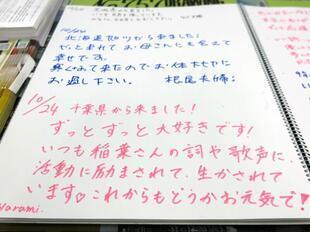 10/24
北海道から来ました!
やっと来れて お母さんにも会えて
幸せです。
寒くなって来たのでお体大切に
お過し下さい。 根尾夫婦
10/24 千葉県から来ました!
ずっとずっと大好きです!
いつも稲葉さんの詞や歌声に、
活動に励まされて、生かされて
います♡これからもどうかお元気で!
Harami.